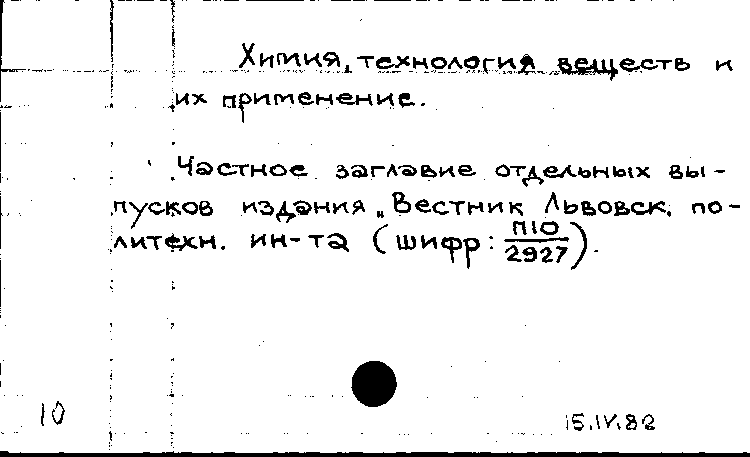 Химия, технология веществ и
их применение.
Частное заглавие отдельных вы-
пусков издания „Вестник Львовск. по-
литехн. ин-та (шифр: П10/2927).
10
15.IV.82